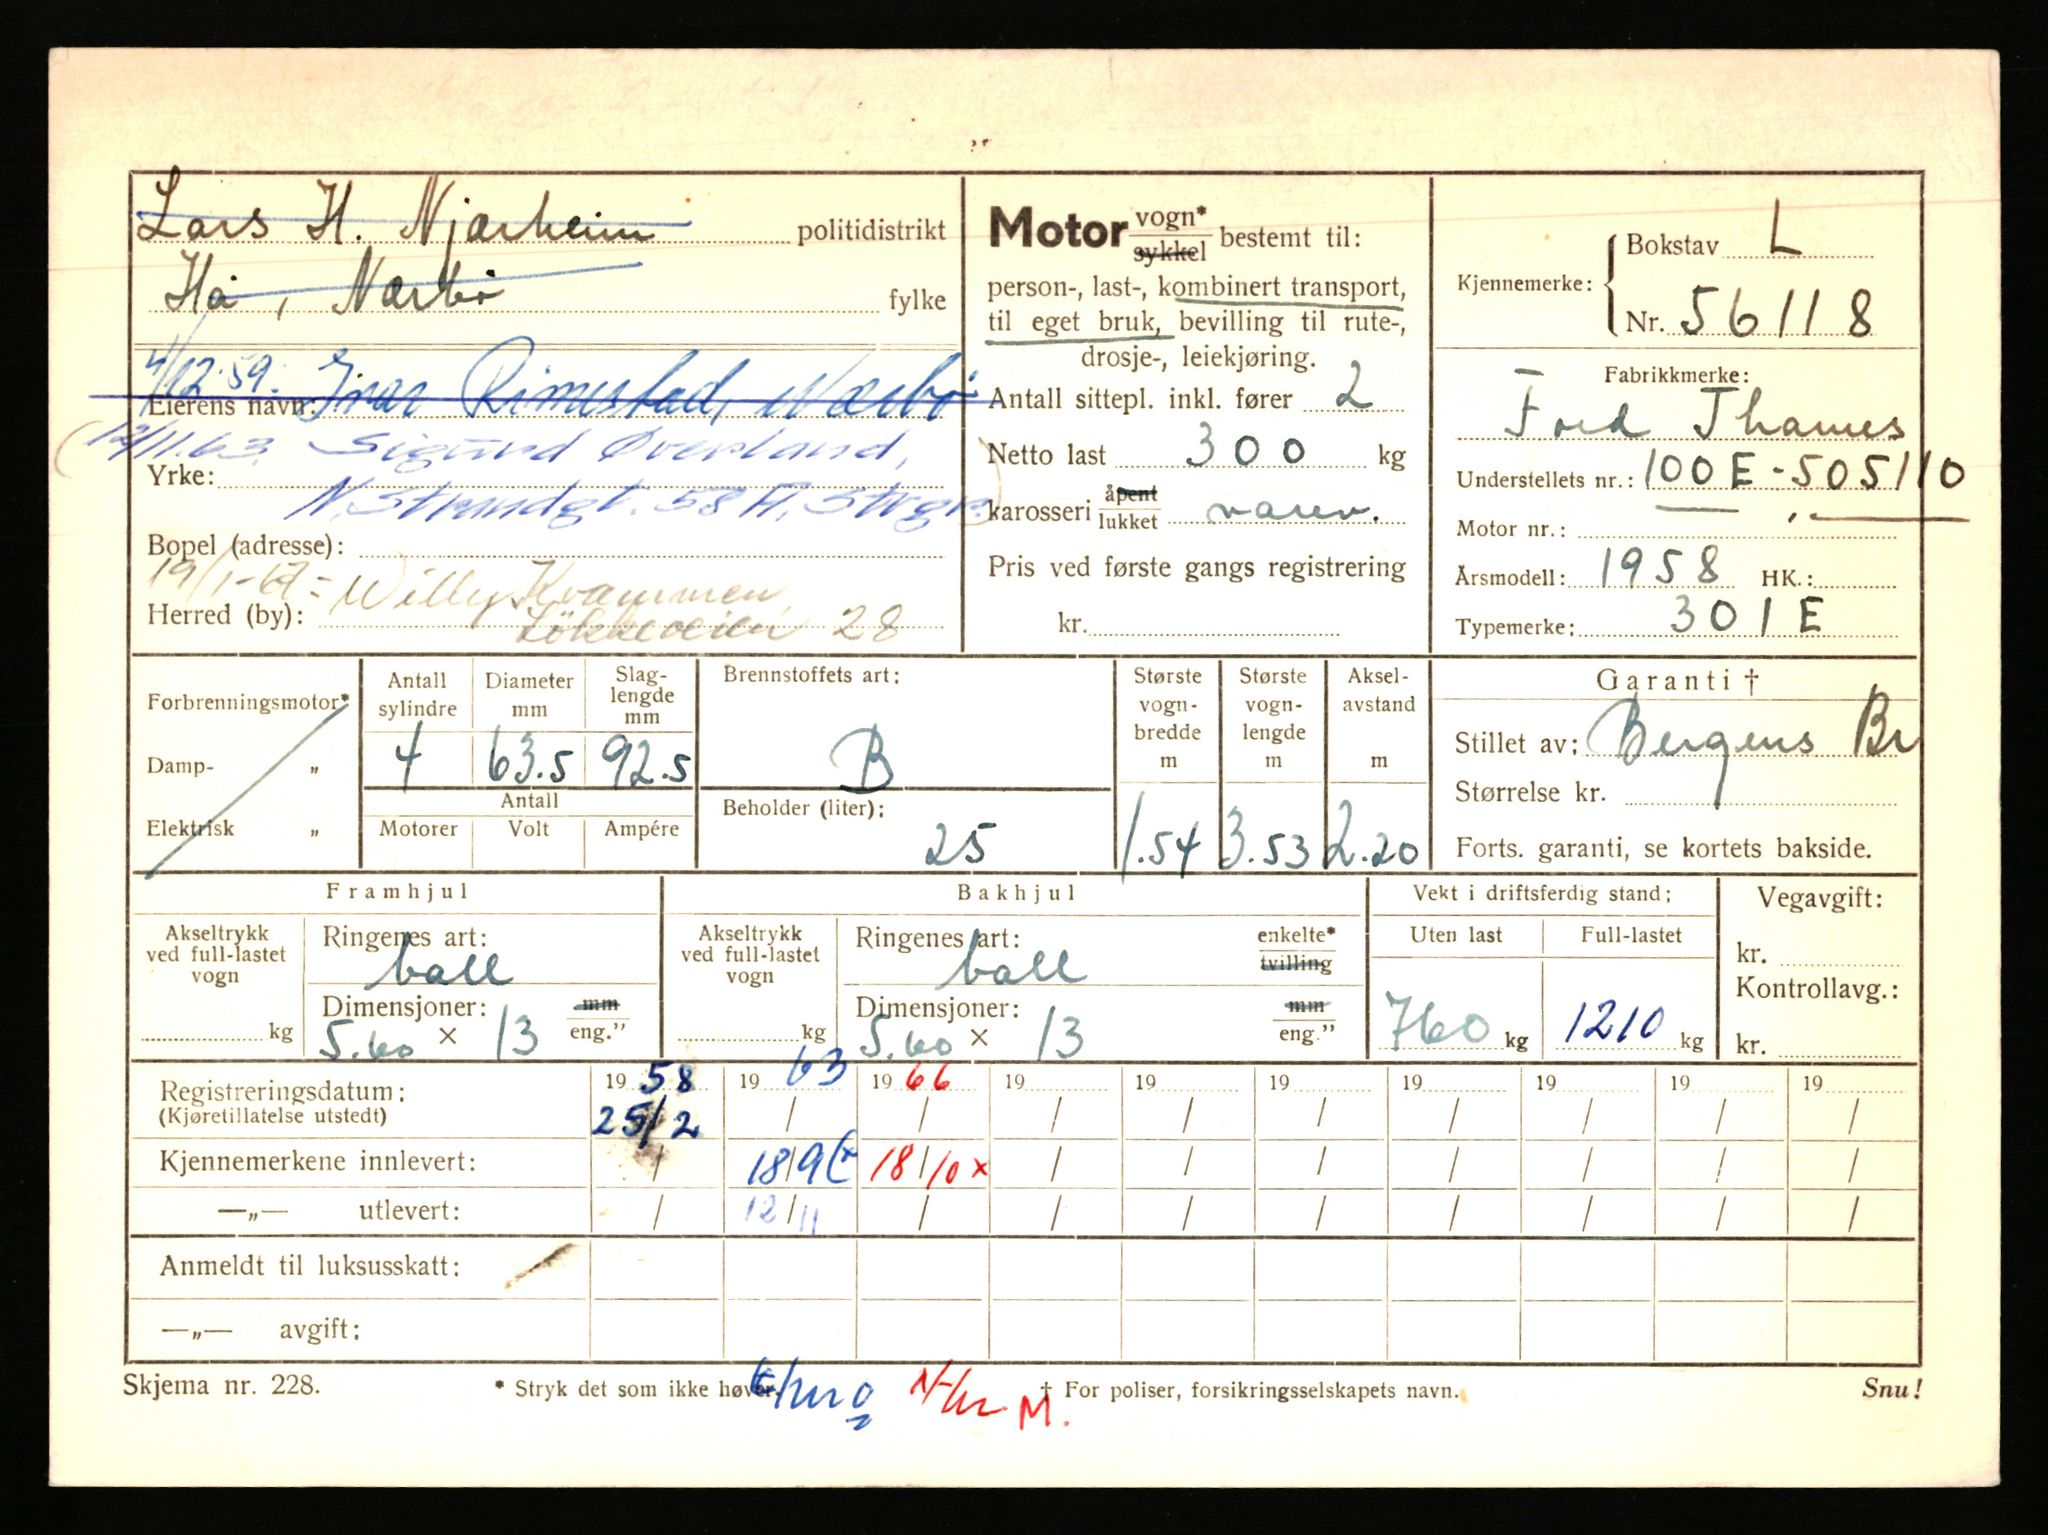 Lars H. Njærheim politidistrikt
Hå, Nærbø fylke
4/12.59. Ivar Rimestad, Nærbø
Eierens navn:
12/11.63 Sigurd Øverland,
Yrke:
N. Strandgt. 58 A, Stvgr.
Bopel (adresse):
19/1-67 = Willy Kvammen,
Herred (by): Løkkeveien 28
Motor vogn* sykkel bestemt til:
person-, last-, kombinert transport,
til eget bruk, bevilling til rute-,
drosje-, leiekjøring.
Antall sittepl. inkl. fører 2
Netto last 300 kg
karosseri åpent lukket varev.
Pris ved første gangs registrering
kr.
Kjennemerke: Bokstav L
Nr. 56118
Fabrikkmerke:
Ford Thames
Understellets nr.: 100E-505110
Motor nr.:
Årsmodell: 1958 HK.:
Typemerke: 301E
Forbrenningsmotor*
Damp- „
Elektrisk „
Antall sylindre Diameter mm Slag-lengde mm
4 63.5 92.5
Antall
Motorer Volt Ampére
Brennstoffets art:
B
Beholder (liter):
25
Største vogn-bredde m Største vogn-lengde m Aksel-avstand m
1.54 3.53 2.20
Garanti †
Stillet av: Bergens Br
Størrelse kr.
Forts. garanti, se kortets bakside.
Framhjul
Akseltrykk ved full-lastet vogn
kg
Ringenes art:
ball
Dimensjoner: mm
5.60 × 13 eng."
Bakhjul
Akseltrykk ved full-lastet vogn
kg
Ringenes art: enkelte*
ball tvilling
Dimensjoner: mm
5.60 × 13 eng."
Vekt i driftsferdig stand:
Uten last Full-lastet
760 kg 1210 kg
Vegavgift:
kr.
Kontrollavg.:
kr.
Registreringsdatum: 1958 1963 1966 19 19 19 19 19 19 19
(Kjøretillatelse utstedt) 25/2 / / / / / / / / /
Kjennemerkene innlevert: / 18/9 (x 18/10 x / / / / / / /
—„— utlevert: / 12/11 / / / / / / / /
Anmeldt til luksusskatt:
—„— avgift:
Skjema nr. 228. * Stryk det som ikke høver. † For poliser, forsikringsselskapets navn. Snu!
M.